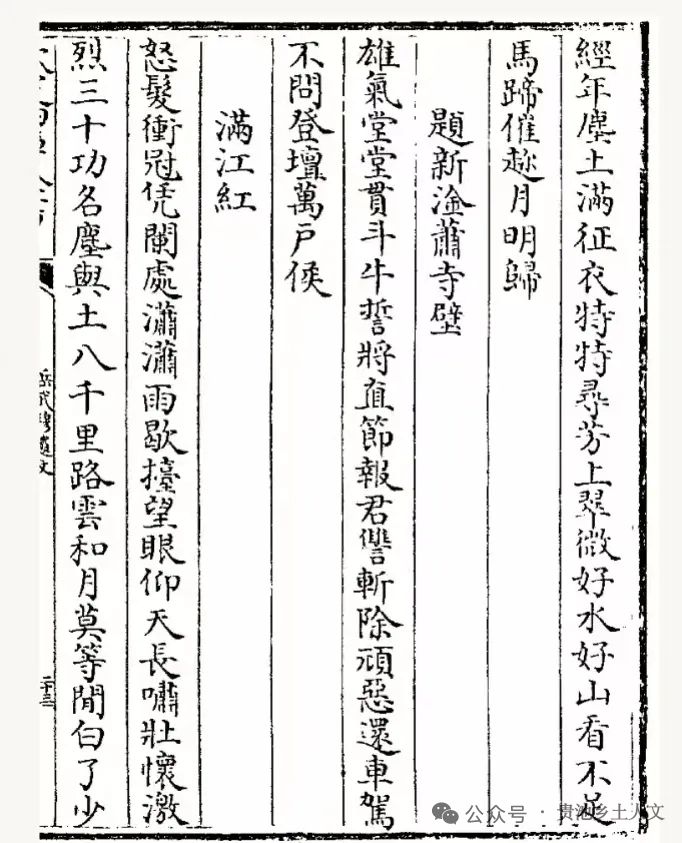 經年塵土滿征衣特特尋芳上翠微好水好山看不足
馬蹄催趂月明歸
題新淦蕭寺壁
雄氣堂堂貫斗牛誓將直節報君讐斬除頑惡還車駕
不問登壇萬戶侯
滿江紅
怒髮衝冠凭闌處瀟瀟雨歇擡望眼仰天長嘯壯懷激
烈三十功名塵與土八千里路雲和月莫等閒白了少
岳武穆遺文
二十三
公众号 · 贵池乡土人文